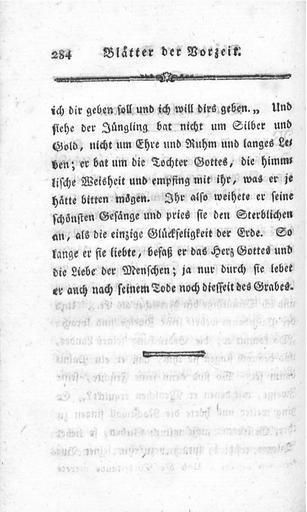 284 Blätter der Vorzeit.
ich dir geben soll und ich will dirs geben.„ Und
siehe der Jüngling bat nicht um Silber und
Gold, nicht um Ehre und Ruhm und langes Le-
ben; er bat um die Tochter Gottes, die himm-
lische Weisheit und empfing mit ihr, was er je
hätte bitten mögen. Ihr also weihete er seine
schönsten Gesänge und pries sie den Sterblichen
an, als die einzige Glückseligkeit der Erde. So
lange er sie liebte, besaß er das Herz Gottes und
die Liebe der Menschen; ja nur durch sie lebet
er auch nach seinem Tode noch diesseit des Grabes.